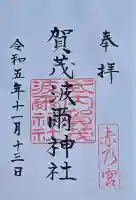 奉拝
賀茂波爾神社
令和五年十一月十三日
赤乃宮